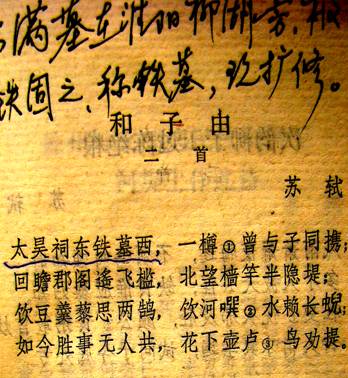 满墓在淮阳柳湖旁,
铁固之、称铁墓,现扩修。
和子由
二首
苏轼
太昊祠东铁墓西, 一樽①曾与子同携;
回瞻郡阁遥飞槛, 北望樯竿半隐堤;
饮豆羹藜思两鹄, 饮河噀②水赖长蜺;
如今胜事无人共, 花下壶卢③鸟劝提。